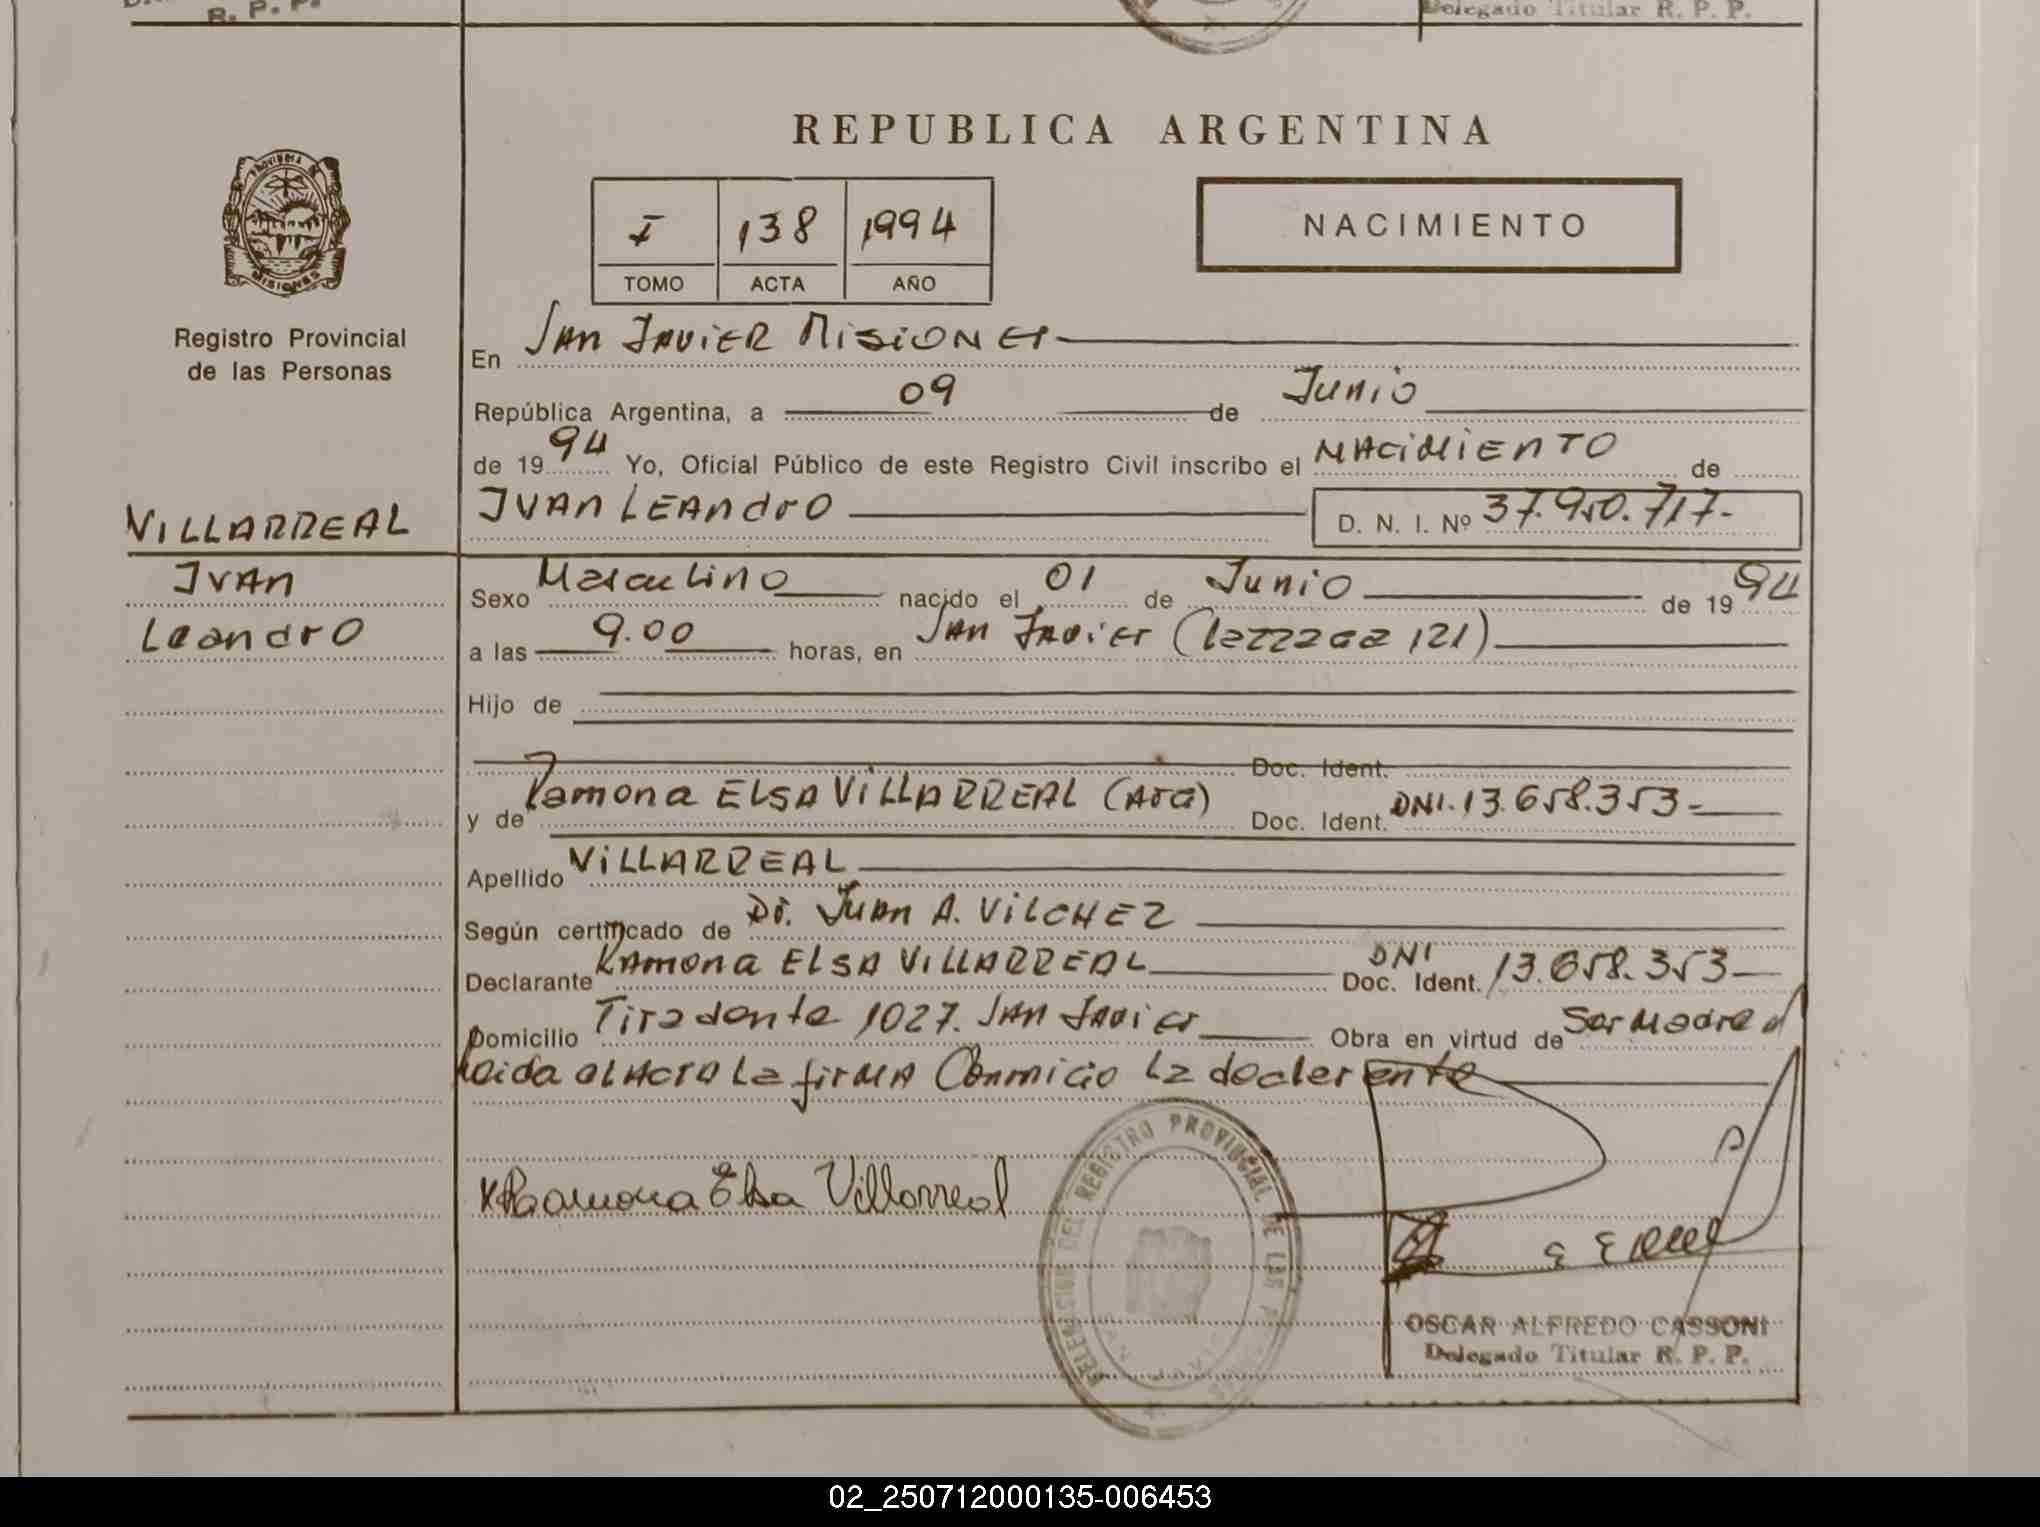 R. P. P.
Delegado Titular R. P. P.
REPUBLICA ARGENTINA
PROVINCIA DE
MISIONES
I 138 1994
TOMO ACTA AÑO
NACIMIENTO
Registro Provincial
de las Personas
En SAN JAVIER MISIONES
República Argentina, a 09 de Junio
de 1994 Yo, Oficial Público de este Registro Civil inscribo el NACIMIENTO de
IVAN LEANdrO D. N. I. Nº 37.950.717.-
VILLARREAL
IVAN
Leandro
Sexo Masculino nacido el 01 de Junio de 1994
a las 9.00 horas, en SAN JAvier (Lazzaga 121)
Hijo de
Doc. Ident.
y de Ramona ELSA VILLARREAL (ArG) Doc. Ident. DNI.13.658.353-
Apellido VILLARREAL
Según certificado de Dr. Juan A. VILCHEZ
Declarante RAmona ELSA VILLARREAL Doc. Ident. DNI 13.658.353-
Domicilio Tiradente 1027. SAN Javier Obra en virtud de Ser Madre
Leida el Acta La firma Conmigo La declarente
x Ramona Elsa Villarreal
DELEGACION DEL REGISTRO PROVINCIAL DE LAS
SAN JAVIER
OSCAR ALFREDO CASSONI
Delegado Titular R. P. P.
02_250712000135-006453